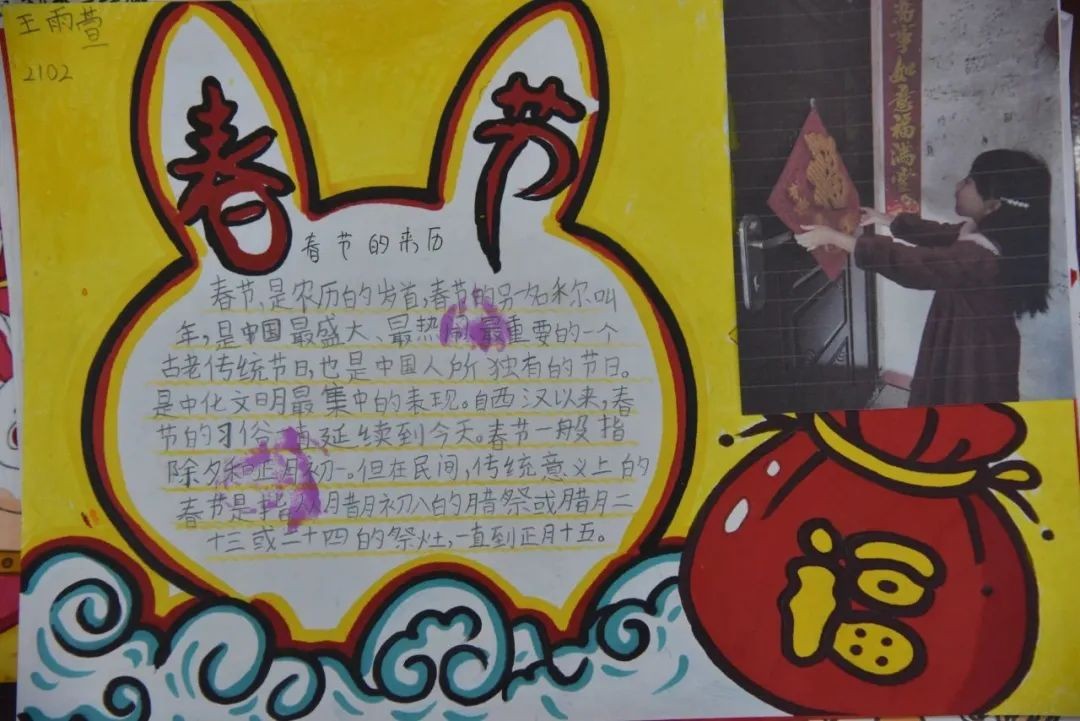 王雨萱
2102
春节
春节的来历
春节,是农历的岁首,春节的另一名称叫
年,是中国最盛大、最热闹、最重要的一个
古老传统节日,也是中国人所独有的节日。
是中化文明最集中的表现。自西汉以来,春
节的习俗一直延续到今天。春节一般指
除夕和正月初一。但在民间,传统意义上的
春节是指从腊月初八的腊祭或腊月二
十三或二十四的祭灶,一直到正月十五。
事如意福满堂
福